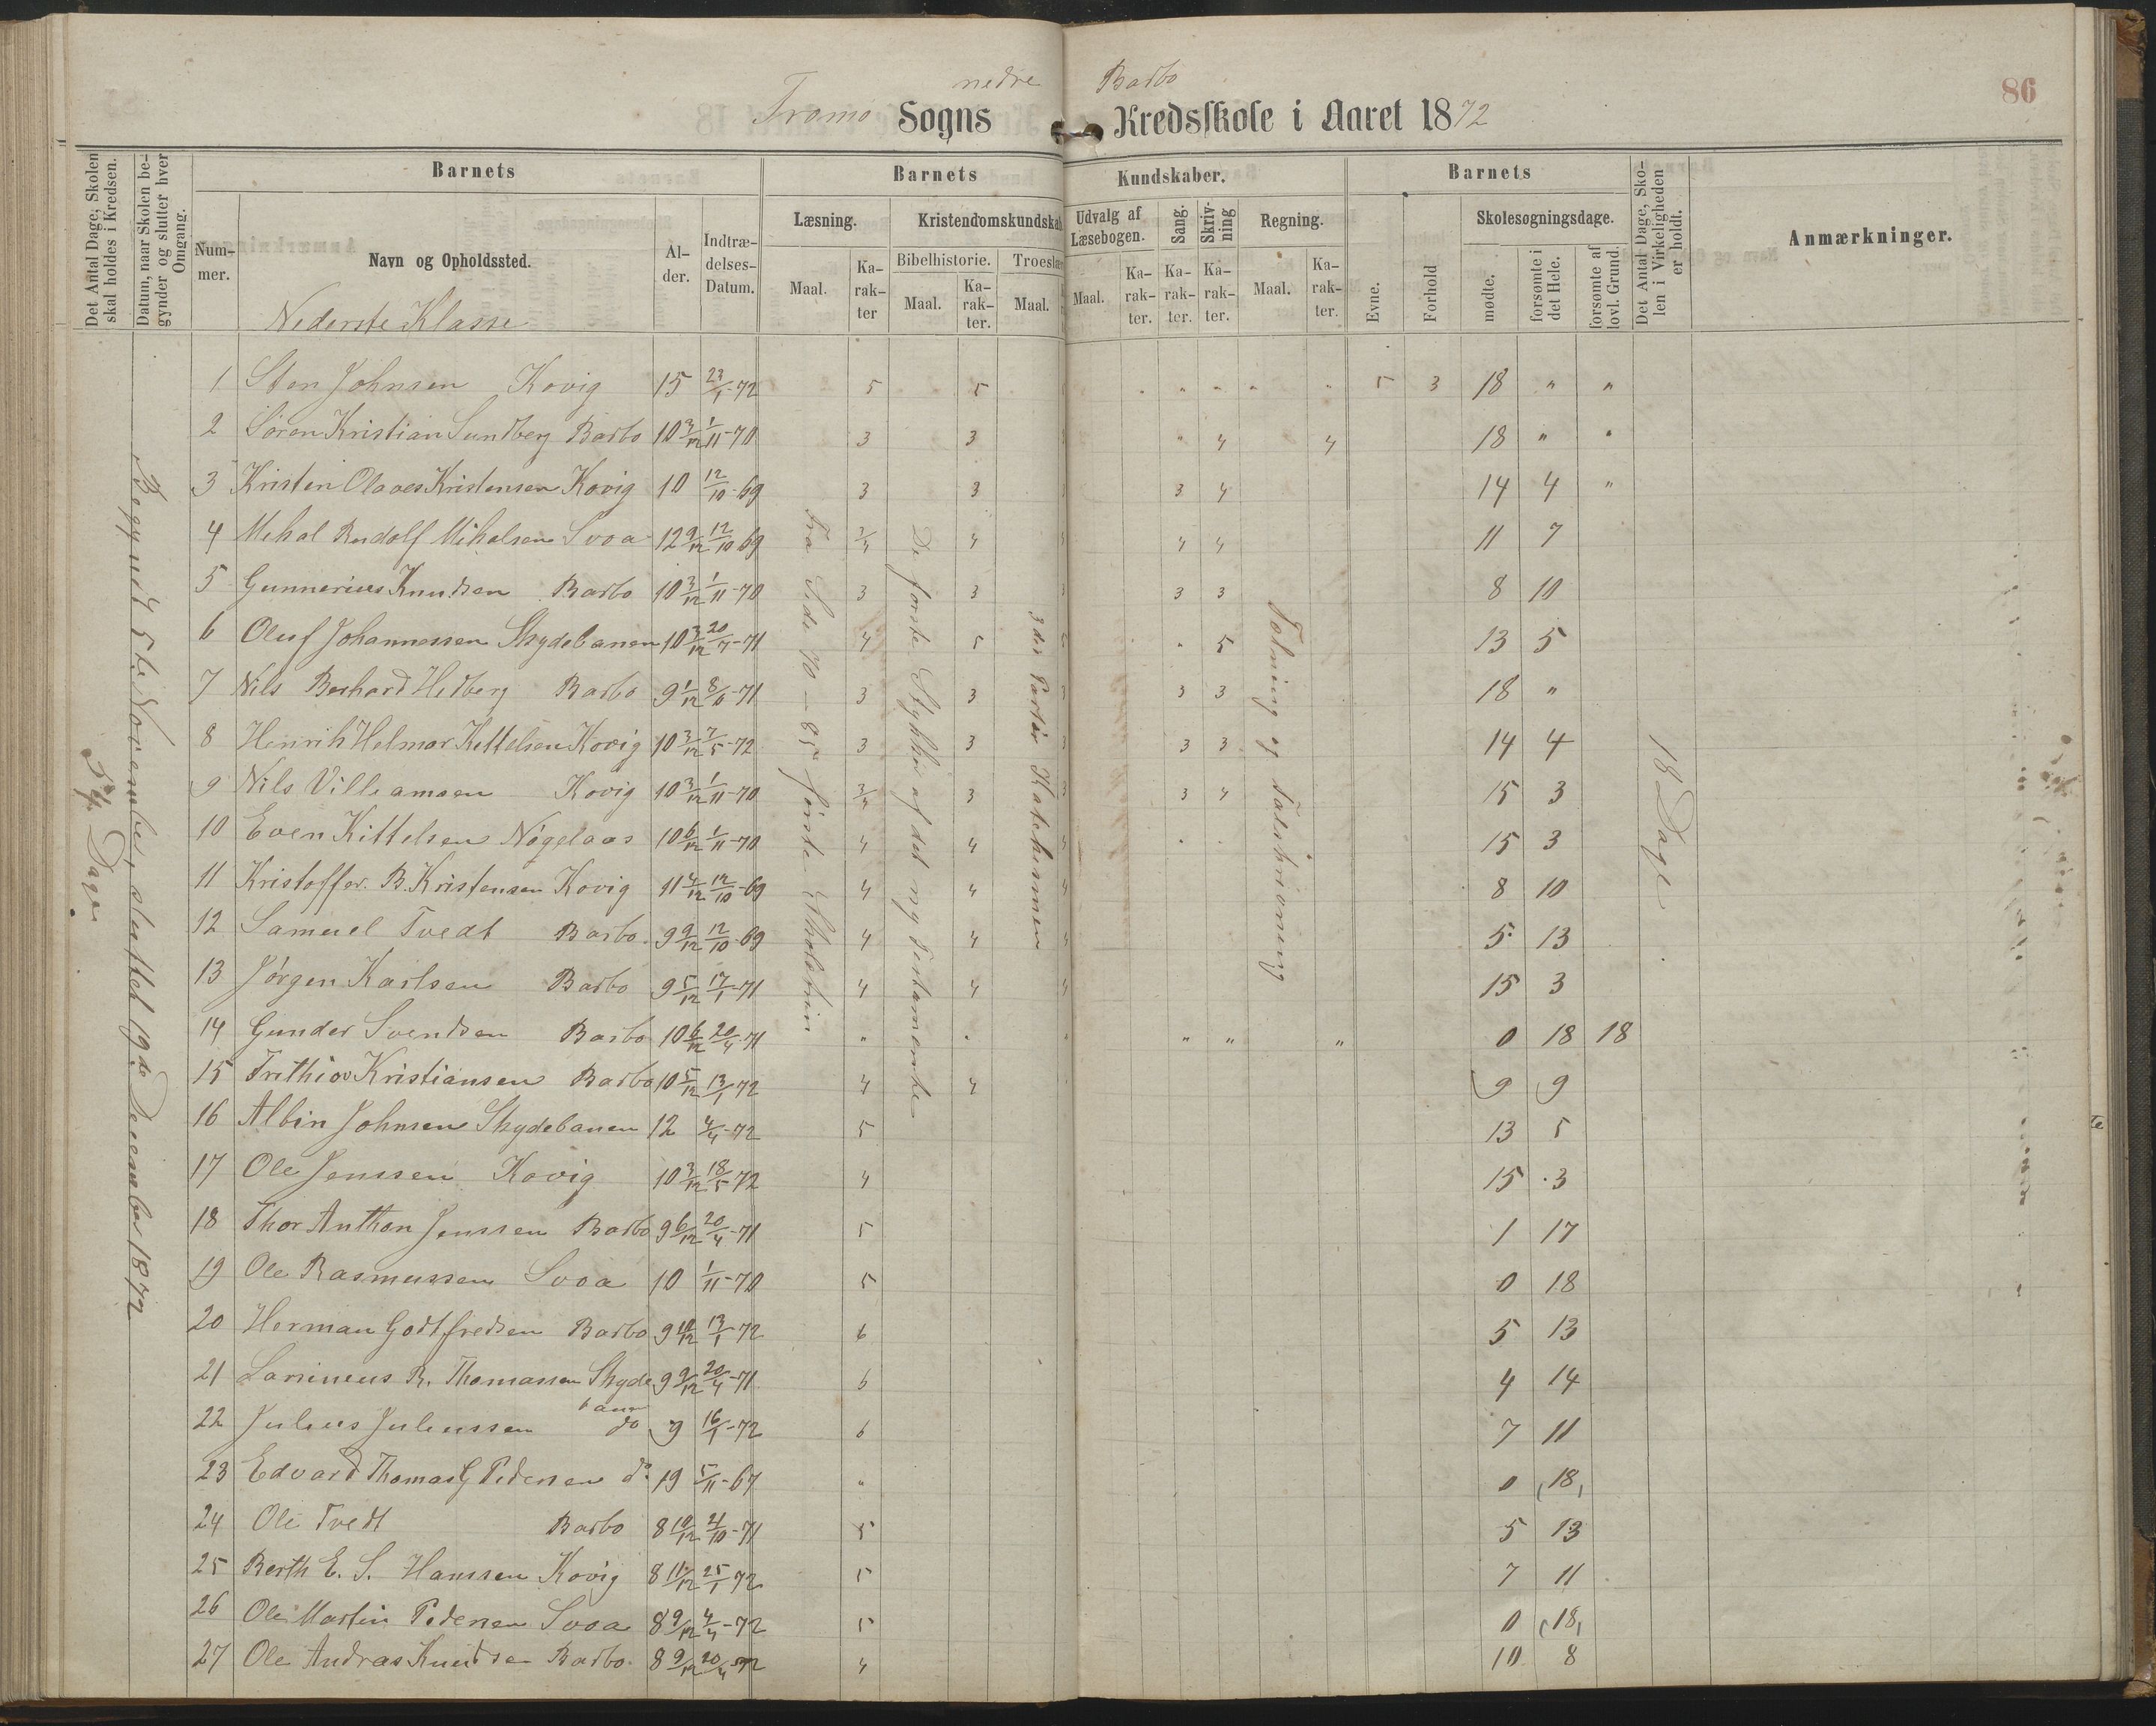 nedre Barbo
86
Tromø Sogns Kredsskole i Aaret 1872
Det Antal Dage, Skolen skal holdes i Kredsen.
Datum, naar Skolen begynder og slutter hver Omgang.
Barnets
Barnets Kundskaber.
Barnets
Det Antal Dage, Skolen i Virkeligheden er holdt.
Anmærkninger.
Nummer.
Navn og Opholdssted.
Alder.
Indtrædelses-Datum.
Læsning.
Kristendomskundskab
Udvalg af Læsebogen.
Sang.
Skrivning
Regning.
Evne.
Forhold
Skolesøgningsdage.
Bibelhistorie.
Troeslær
Maal.
Karakter
Maal.
Karakter.
Maal.
Maal.
Karakter.
Karakter.
Karakter.
Maal.
Karakter.
mødte.
forsømte i det Hele.
forsømte af lovl. Grund.
Nederste Klasse
1 Sten Johnsen Kovig 15 23/1-72 5 5 " " " " 5 3 18 " "
2 Søren Kristian Sundberg Barbo 10 3/12 1/11-70 3 3 3 " 4 4 18 " "
3 Kristen Olaves Kristensen Kovig 10 12/10-69 3 3 3 3 4 14 4 "
4 Mihal Rudolf Mihalsen Svoa 12 9/12 12/10 69 3/4 4 4 4 11 7
5 Gunnerius Knudsen Barbo 10 3/12 1/11-70 3 3 3 3 3 8 10
6 Oluf Johannessen Skydebanen 10 3/12 20/4-71 4 5 5 " 5 13 5
7 Nils Berhard Hedberg Barbo 9 1/12 8/6-71 3 3 3 3 3 18 "
8 Henrik Helmer Kittelsen Kovig 10 3/12 7/5-72 3 3 3 3 3 14 4
9 Nils Villiamsen Kovig 10 3/12 1/11-70 3/4 3 3 3 4 15 3
10 Even Kittelsen Nøgelaas 10 6/12 1/11-70 4 4 4 " " 15 3
11 Kristoffer B. Kristensen Kovig 11 4/12 12/10-69 4 4 4 8 10
12 Samuel Tvedt Barbo 9 9/12 12/10-69 4 4 4 5 13
13 Jørgen Karlsen Barbo 9 5/12 17/1-71 4 4 4 15 3
14 Gunder Svendsen Barbo 10 6/12 20/4-71 " " " " " " 0 18 18
15 Frithiov Kristiansen Barbo 10 5/12 13/1-72 4 4 9 9
16 Albin Johnsen Skydebanen 12 4/4-72 5 13 5
17 Ole Jenssen Kovig 10 3/12 18/5 72 4 15 3
18 Thor Anthon Jenssen Barbo 9 6/12 20/4-71 5 1 17
19 Ole Rasmussen Svoa 10 1/11-70 5 0 18
20 Herman Godtfredsen Barbo 9 10/12 13/1-72 6 5 13
21 R. Thomassen Skydebann 9 9/12 20/4-71 6 4 14
22 Julius Juliussen do 9 16/1-72 6 7 11
23 Edvard Thomas G Pedersen do 19 5/11-67 " 0 18
24 Ole Tvedt Barbo 8 10/12 21/10-71 5 5 13
25 Berth E. S. Hanssen Kovig 8 11/12 25/1 72 5 7 11
26 Ole Martin Pedersen Svoa 8 9/12 4/4-72 5 0 18
27 Ole Andreas Knudsen Barbo 8 9/12 20/4-72 4 10 8
54 Dage
Begyndt 5te November, sluttet 19de December 1872
Fra Side 70-85 første
De første Stykker af det ny Testamente
3die Part Katekismen
Tælning og Talskrivning
18 Dage